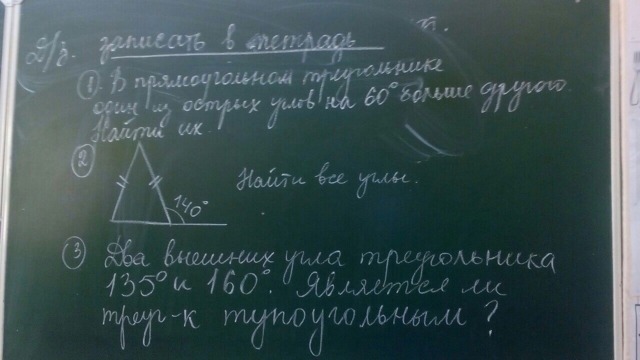 Д/з. записать в тетрадь
① В прямоугольном треугольнике
один из острых углов на 60° больше другого.
Найти их.
②
140°
Найти все углы.
③ Два внешних угла треугольника
135° и 160°. Является ли
треуг-к тупоугольным?